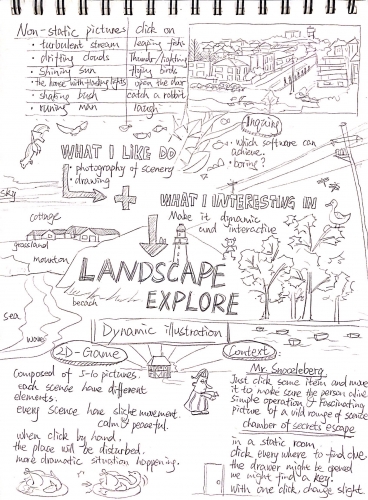 Non-static pictures
click on
• turbulent stream
leaping fish
• drifting clouds
thunder/lighting
• shining sun
flying birds
open the door
catch a rabbit
• runing man
laugh
WHAT I LIKE DO
• photography of scenery
• drawing
• which software can
achieve.
• boring?
WHAT I INTERESTING IN
Make it dynamic
and interactive
sky
cottage
grassland
mountain
sea
wave
beach
LANDSCAPE
EXPLORE
Dynamic illustration
2D-Game
composed of 5-10 pictures.
each scense have different
elements.
every scense have slight movement.
calm & peaceful
when click by hand.
the place will be disturbed.
more dramatic situation happening.
Context
Mr. Snoozleberg
Just click some item and make
it to make sure the person alive
simple operation & Fascinating
picture of a wild range of scense
chamber of secrets escape
in a static room
click every where to find clue.
the drawer might be opened
we might find a key.
with one click, change slight